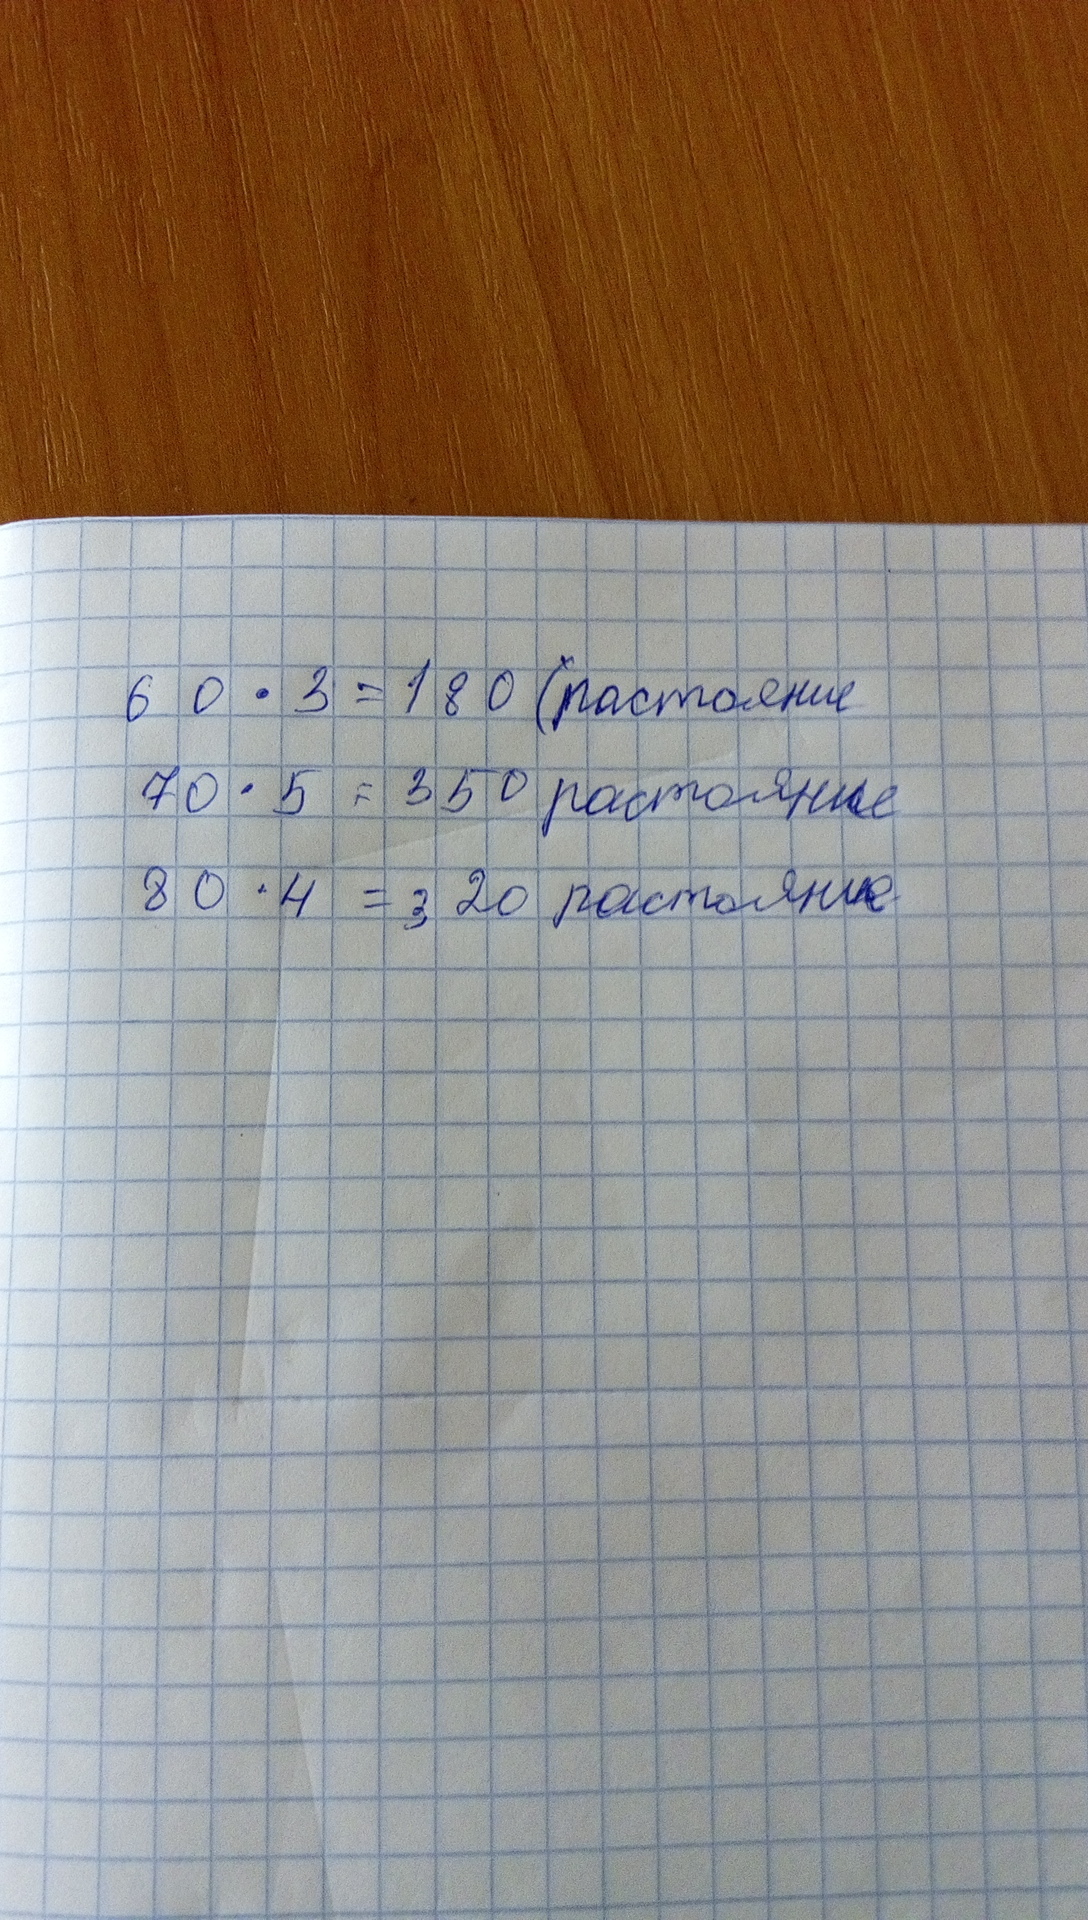 60 · 3 = 180 (растояние
70 · 5 = 350 растояние
80 · 4 = 320 растояние